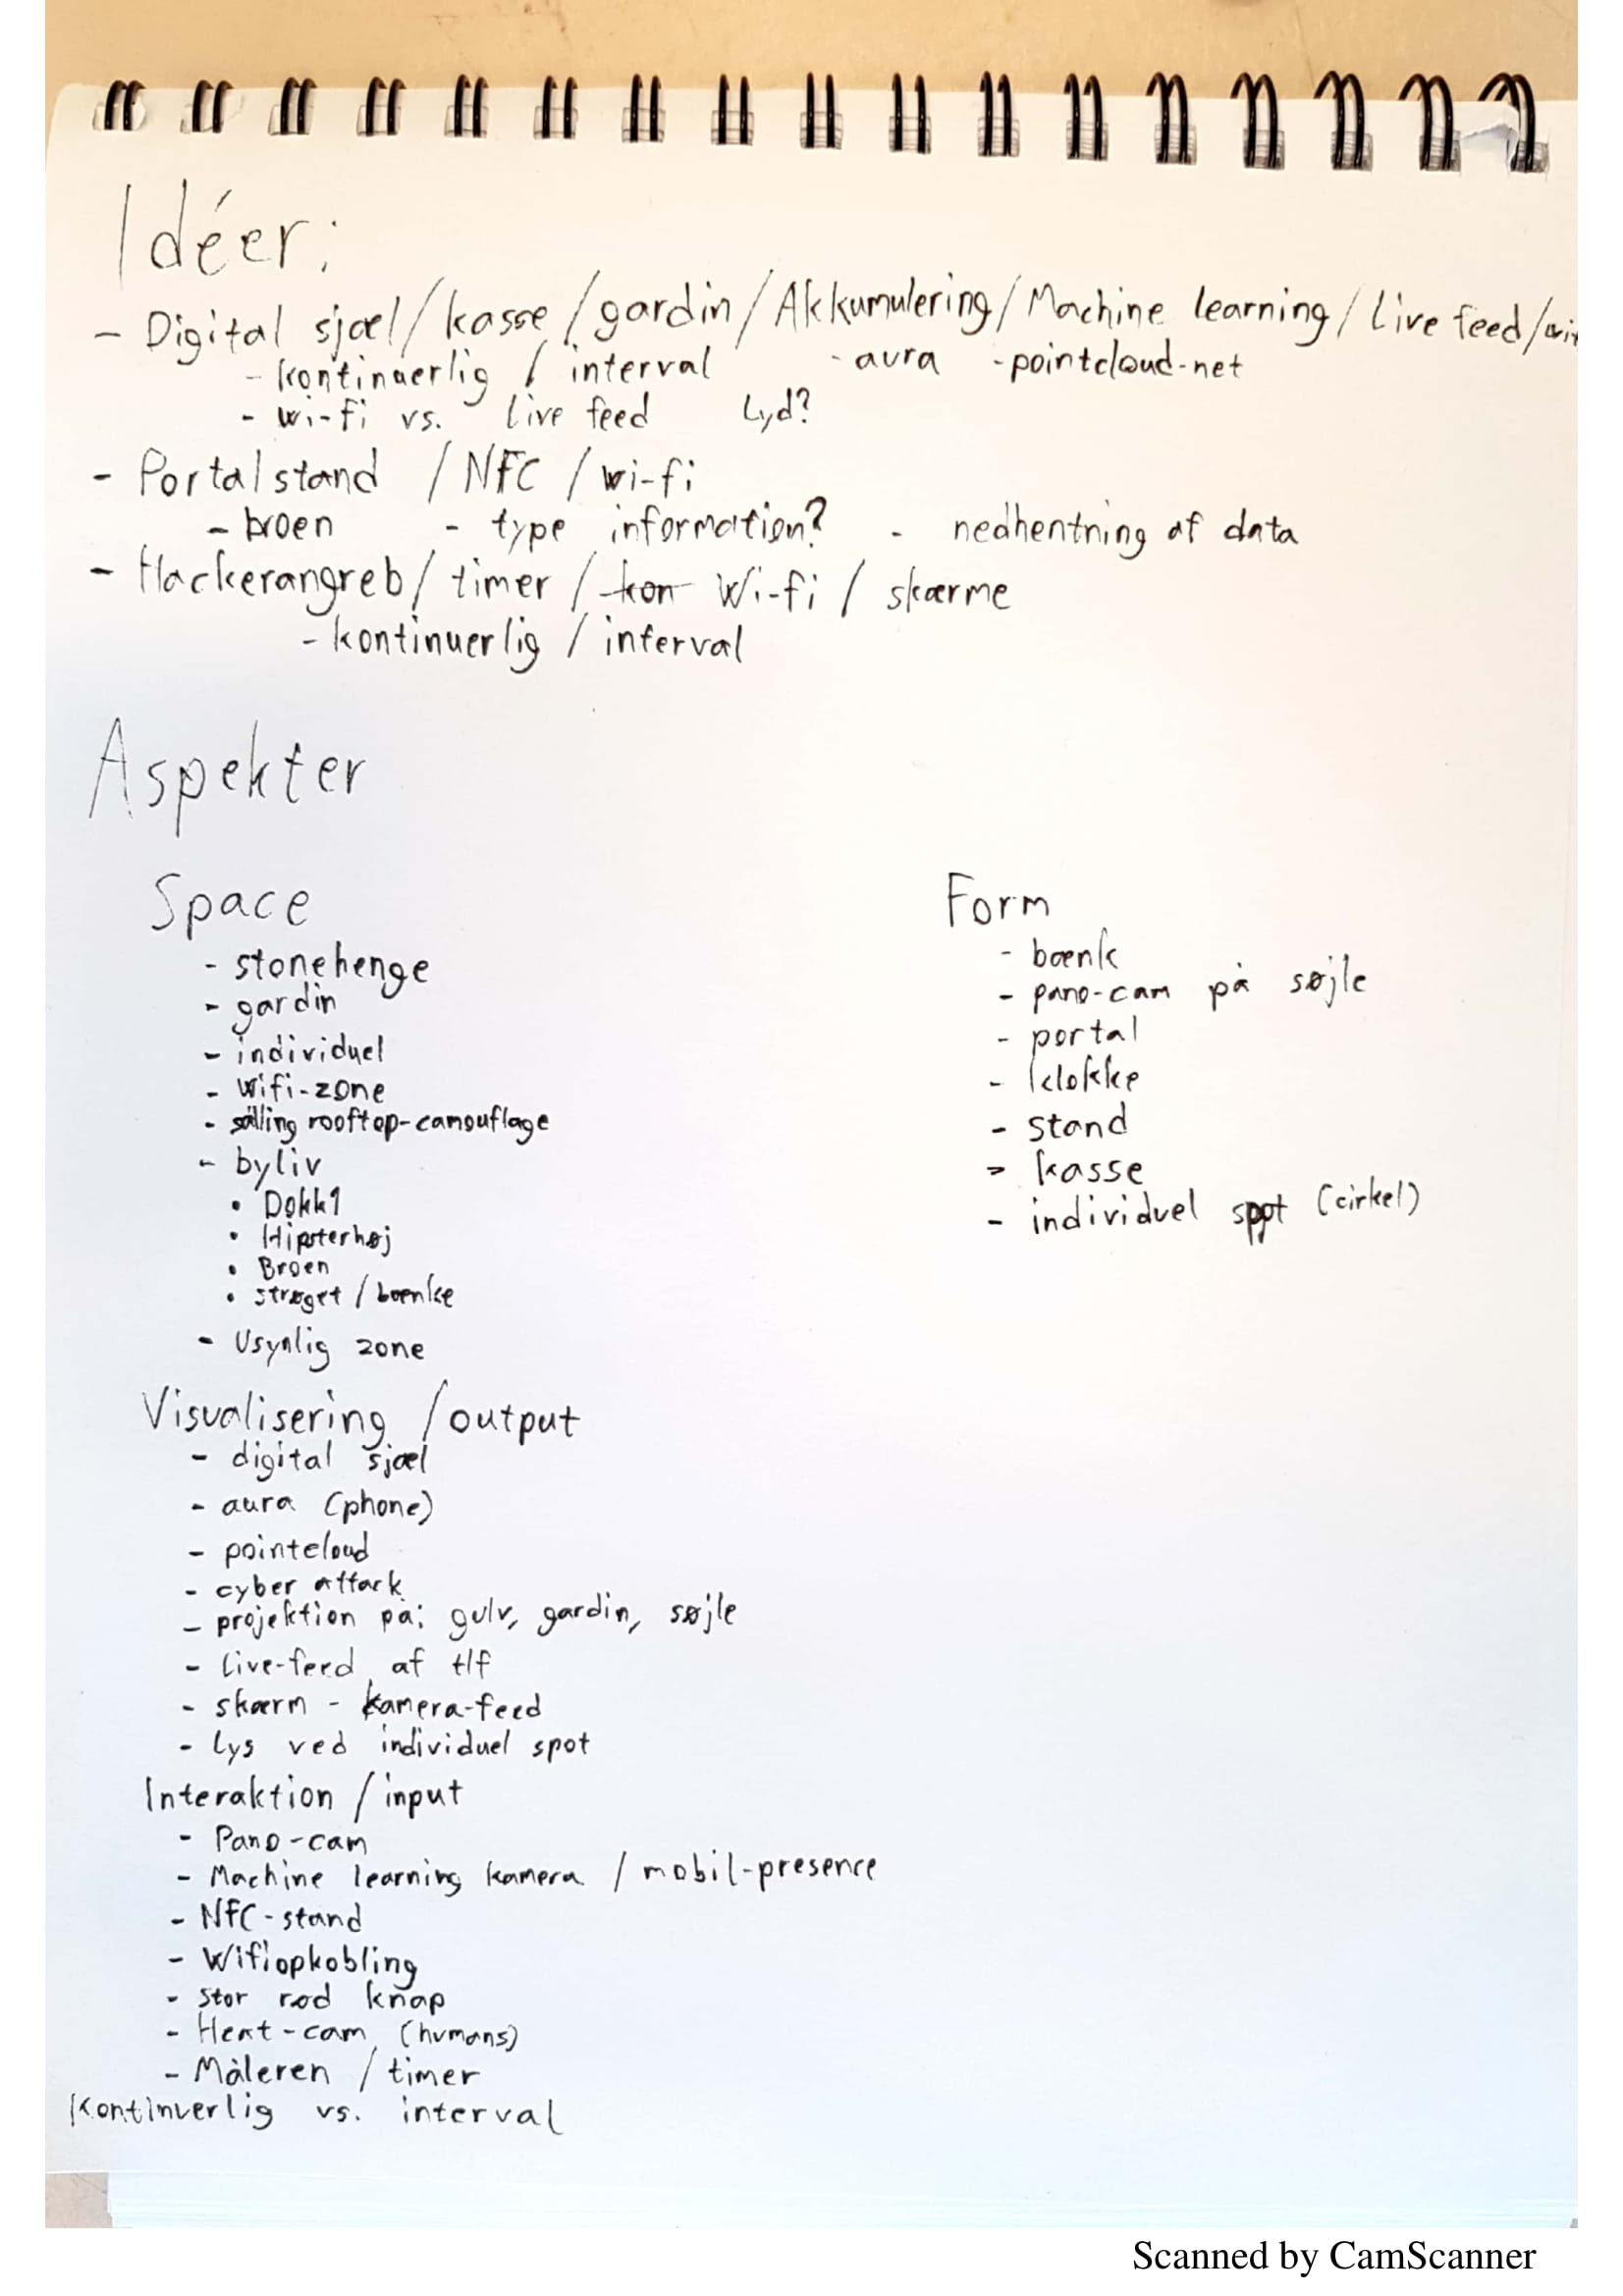 Idéer:
- Digital sjæl / kasse / gardin / Akkumulering / Machine learning / Live feed /
- kontinuerlig / interval - aura - pointcloud-net
- wi-fi vs. live feed Lyd?
- Portalstand / NFC / wi-fi
- broen - type information? - nedhentning af data
- Hackerangreb / timer / kon Wi-fi / skærme
- kontinuerlig / interval
Aspekter
Space
- stonehenge
- gardin
- individuel
- Wifi-zone
- salling rooftop-camouflage
- byliv
• Dokk1
• Hipsterhøj
• Broen
• strøget / bænke
- Usynlig zone
Form
- bænk
- pano-cam på søjle
- portal
- klokke
- stand
- kasse
- individuel spot (cirkel)
Visualisering / output
- digital sjæl
- aura (phone)
- pointcloud
- cyber attack
- projektion på: gulv, gardin, søjle
- live-feed af tlf
- skærm - kamera-feed
- Lys ved individuel spot
Interaktion / input
- Pano-cam
- Machine learning kamera / mobil-presence
- NFC-stand
- Wifiopkobling
- stor rød knap
- Heat-cam (humans)
- Måleren / timer
Kontinuerlig vs. interval
Scanned by CamScanner